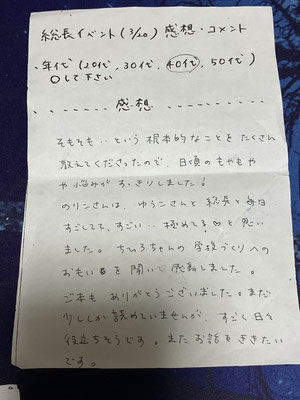 総長イベント(3/20) 感想・コメント
、年代(20代、30代、40代、50代)
○して下さい
感想
そもそも‥という根本的なことをたくさん
教えてくださったので、日頃のもやもや
や悩みがすっきりしました!
のりこさんは、ゆうこさんと総長と毎日
すごしてて、すごい‥極めてる∞と思い
ました。ちひろちゃんの学校づくりへの
おもいを聞いて感動しました。
ご本もありがとうございました。まだ
少ししか読めていませんが、すごく日々
役立ちそうです。またお話をききたい
です。